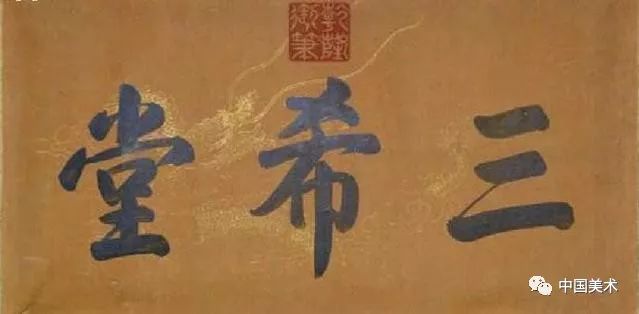 三希堂
乾隆御筆
中国美术